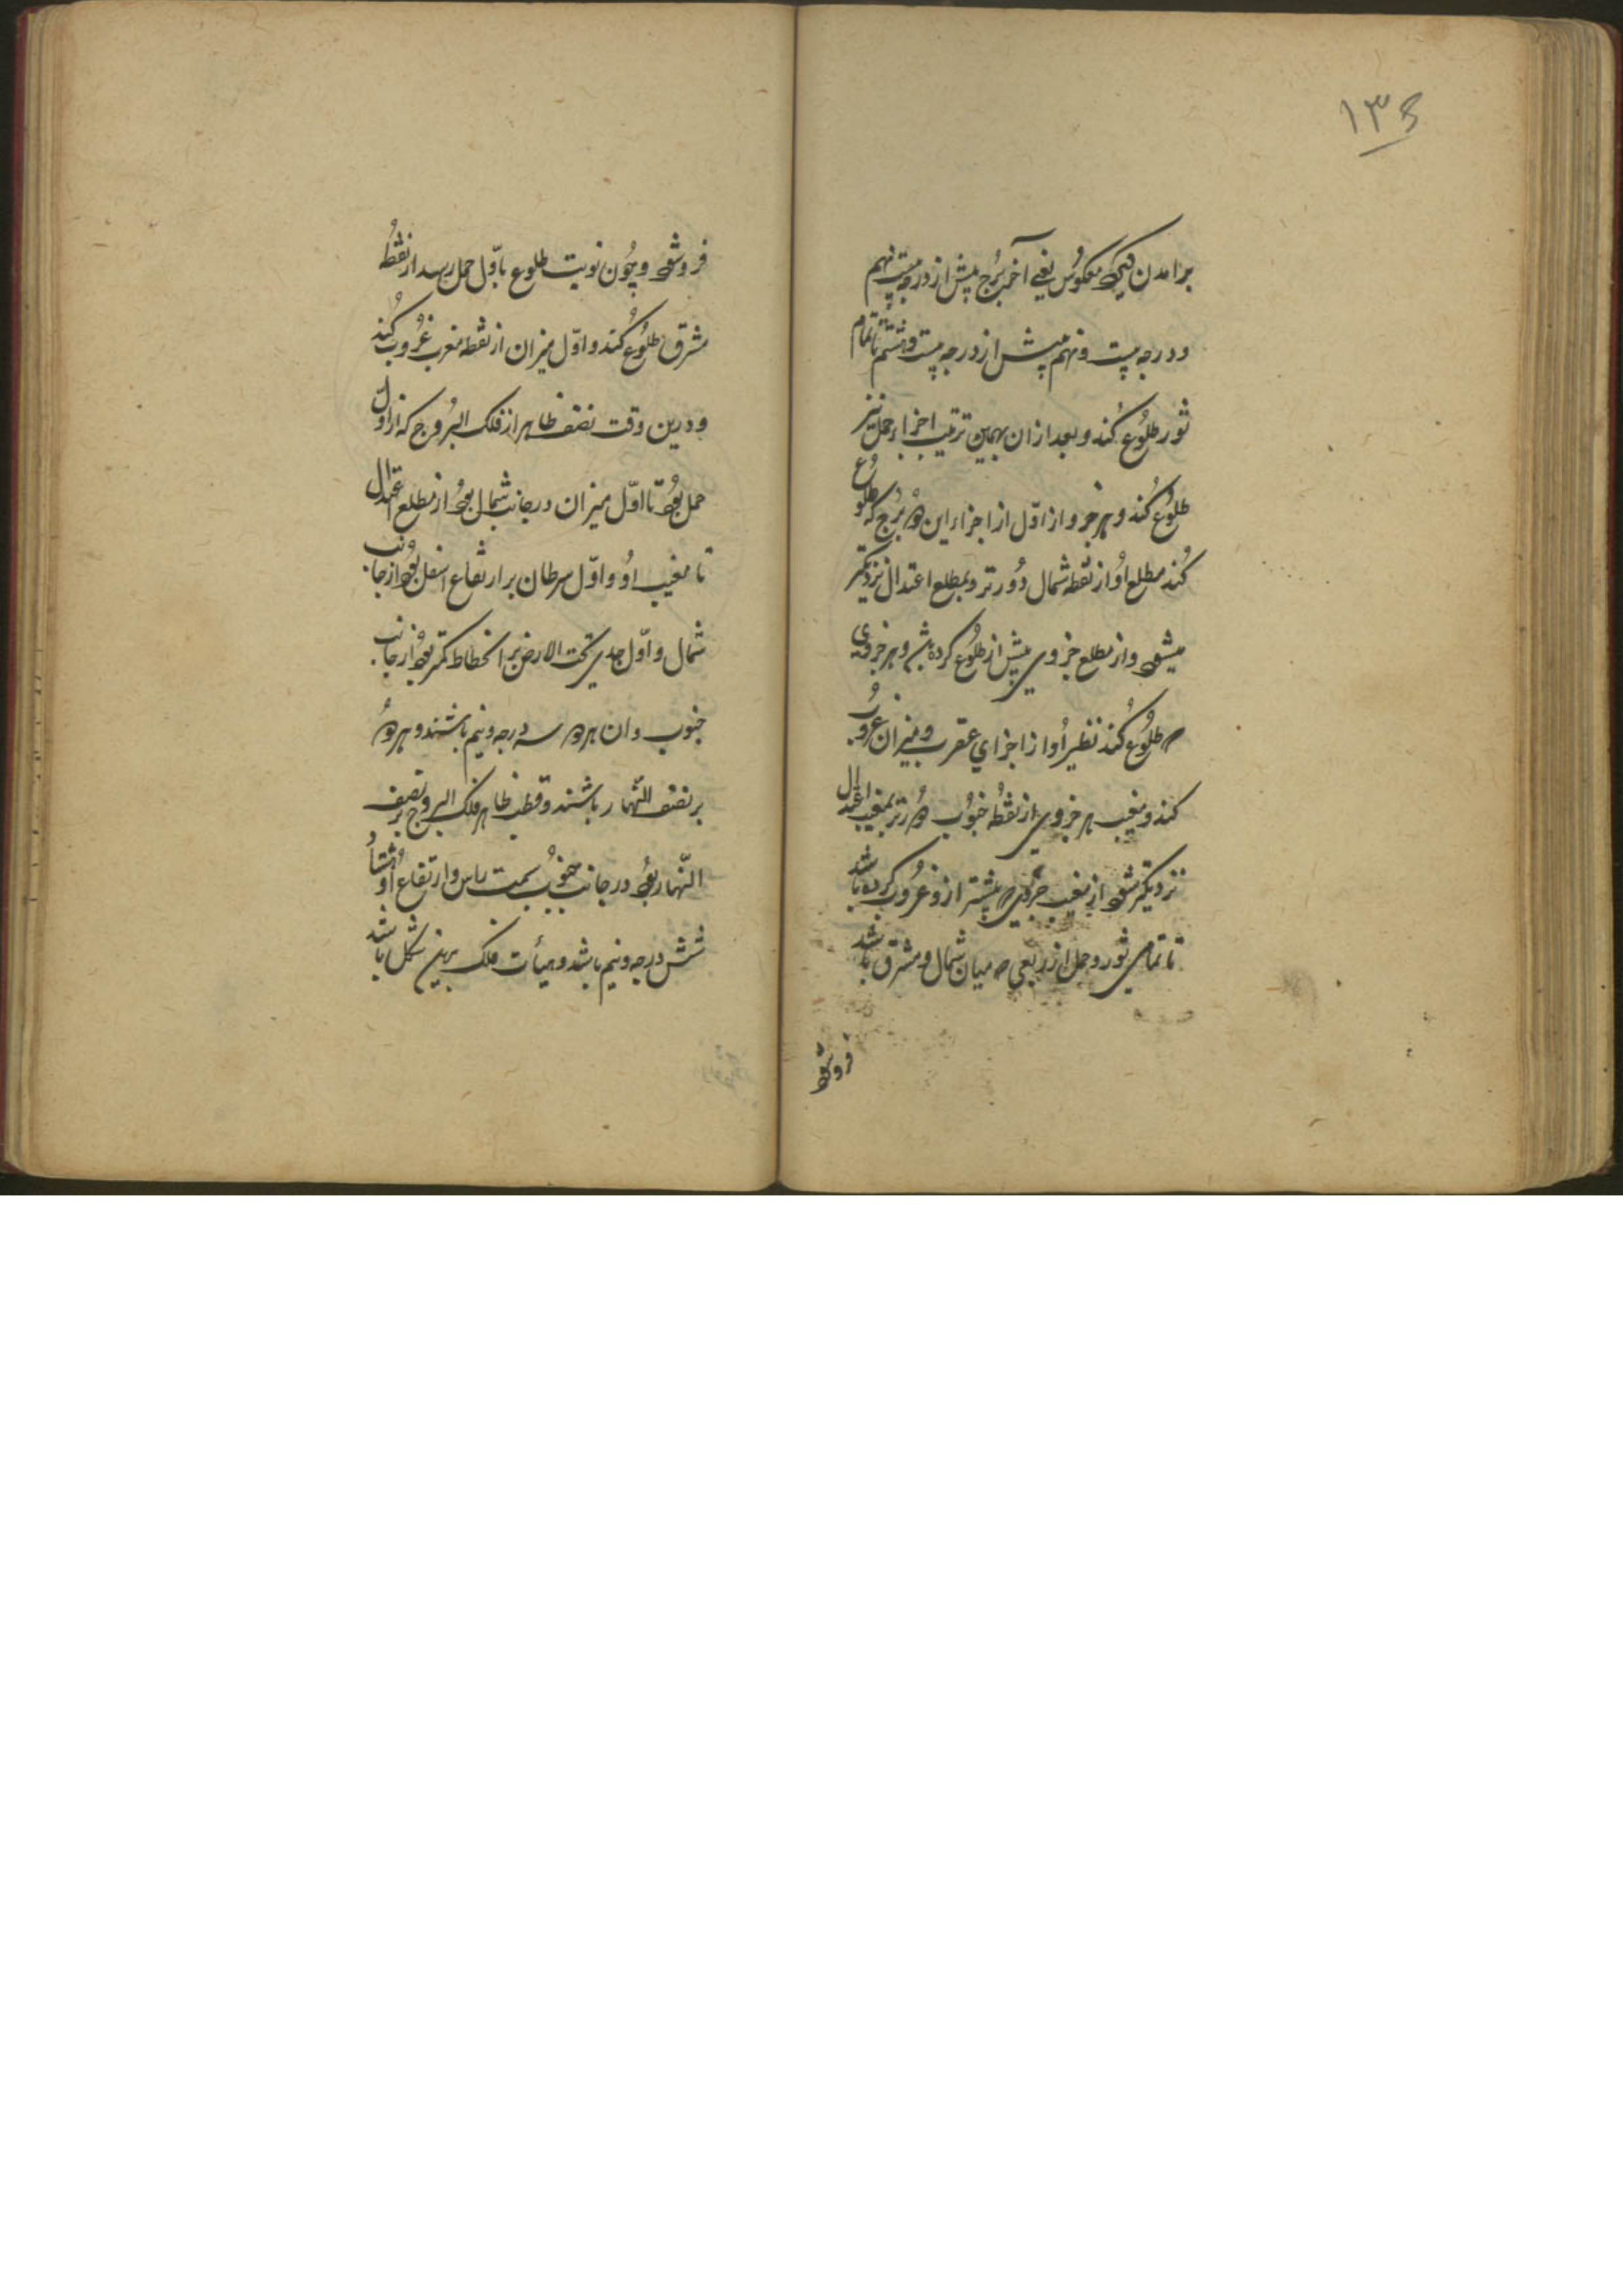 ۱۳۵
برامدن لیکن معکوس یعنی آخر برج پیش از درجه بیست نهم
ودرجه بیست ونهم پیش از درجه بیست وهشتم تا تمام
ثور طلوع کند وبعد ازان بهمین ترتیب اجزا حمل نیز
طلوع کند وهر جزو از اوّل از اجزاء این دو برج که طلوع
کند مطلع او از نقطه شمال دورتر وبمطلع اعتدال نزدیکتر
میشود واز مطلع جزوی پیش از طلوع کرده وهر جزوی
که طلوع کند نظیر أو از اجزای عقرب ومیزان غروب
کند ومغیب هر جزوی از نقطه جنوب دورتر بمغیب اعتدال
نزدیکتر شود از مغیب جزوی که پیشتر ازو غروب کرده باشد
تا تمامی ثور وحمل از ربعی که میان شمال ومشرق باشد
فروشود
فروشود وچون نوبت طلوع باوّل حمل رسد از نقطهٔ
مشرق طلوع کند واوّل میزان از نقطه مغرب غروب کند
ودرین وقت نصف ظاهر از فلک البروج که از اوّل
حمل بود تا اوّل میزان در جانب شمال بود از مطلع اعتدال
تا مغیب او واوّل سرطان بر ارتفاع اسفل بود از جانب
شمال واوّل جدی تحت الارض بر انحطاط کمتر بود از جانب
جنوب وان هردو سه درجه ونیم باشند وهردو
بر نصف النّهار باشند وقطب ظاهر فلک البروج بر نصف
النّهار بود در جانب جنوب سمت راس وارتفاع او شتاد
شش درجه ونیم باشد وهیأت فلک برین شکل باشد